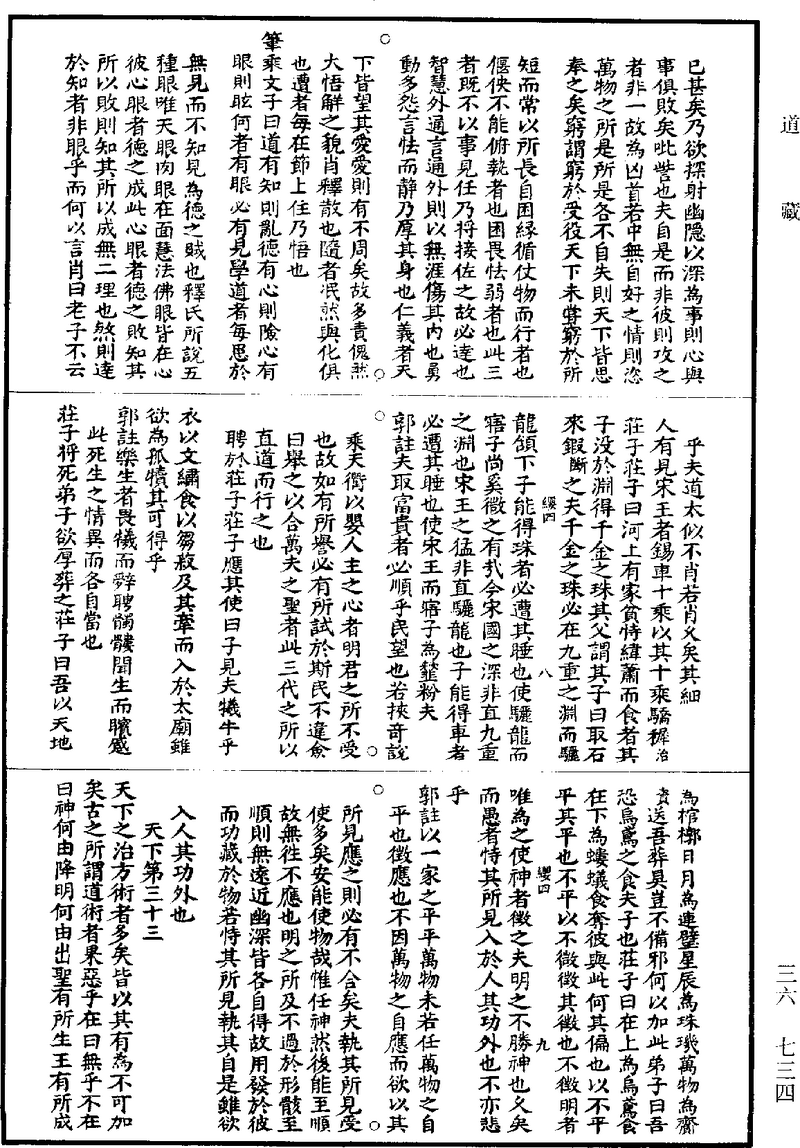 道藏
已甚矣乃欲探射幽隱以深為事則心與
事俱敗矣吡訾也夫自是而非彼則攻之
者非一故為凶首若中無自好之情則恣
萬物之所是所是各不自失則天下皆思
奉之矣窮謂窮於受役天下未嘗窮於所
短而常以所長自困緣循仗物而行者也
偃佒不能俯執者也困畏怯弱者也此三
者既不以事見任乃將接佐之故必達也
智慧外通言通外則以無涯傷其內也勇
動多怨言怯而靜乃厚其身也仁義者天
下皆望其愛愛則有不周矣故多責傀然
大悟解之貌肖釋散也隨者泯然與化俱
也遭者每在節上住乃悟也
筆乘文子曰道有知則亂德有心則險心有
眼則眩何者有眼必有見學道者每思於
無見而不知見為德之賊也釋氏所說五
種眼唯天眼肉眼在面慧法佛眼皆在心
彼心眼者德之成此心眼者德之敗知其
所以敗則知其所以成無二理也然則達
於知者非眼乎而何以言肖曰老子不云
乎夫道太似不肖若肖久矣其細
人有見宋王者錫車十乘以其十乘驕穉治
莊子莊子曰河上有家貧恃緯蕭而食者其
子没於淵得千金之珠其父謂其子曰取石
來鍜斷之夫千金之珠必在九重之淵而驪
龍頷下子能得珠者必遭其睡也使驪龍而
纓四 八
寤子尚奚微之有哉今宋國之深非直九重
之淵也宋王之猛非直驪龍也子能得車者
必遭其睡也使宋王而寤子為韲粉夫
郭註夫取富貴者必順乎民望也若挾奇說
乘天衢以嬰人主之心者明君之所不受
也故如有所譽必有所試於斯民不違僉
曰舉之以合萬夫之聖者此三代之所以
直道而行之也
聘於莊子莊子應其使曰子見夫犧牛乎
衣以文繡食以芻菽及其牽而入於太廟雖
欲為孤犢其可得乎
郭註樂生者畏犧而辭聘髑髏聞生而矉蹙
此死生之情異而各自當也
莊子將死弟子欲厚葬之莊子曰吾以天地
為棺槨日月為連璧星辰為珠璣萬物為齎
賷送吾葬具豈不備邪何以加此弟子曰吾
恐烏鳶之食夫子也莊子曰在上為烏鳶食
在下為螻蟻食奪彼與此何其偏也以不平
平其平也不平以不徵徵其徵也不徵明者
纓四 九
唯為之使神者徵之夫明之不勝神也久矣
而愚者恃其所見入於人其功外也不亦悲
乎
郭註以一家之平平萬物未若任萬物之自
平也徵應也不因萬物之自應而欲以其
所見應之則必有不合矣夫執其所見受
使多矣安能使物哉惟任神然後能至順
故無往不應也明之所及不過於形骸至
順則無遠近幽深皆各自得故用發於彼
而功藏於物若恃其所見執其自是雖欲
入人其功外也
天下第三十三
天下之治方術者多矣皆以其有為不可加
矣古之所謂道術者果惡乎在曰無乎不在
曰神何由降明何由出聖有所生王有所成
三六 七三四